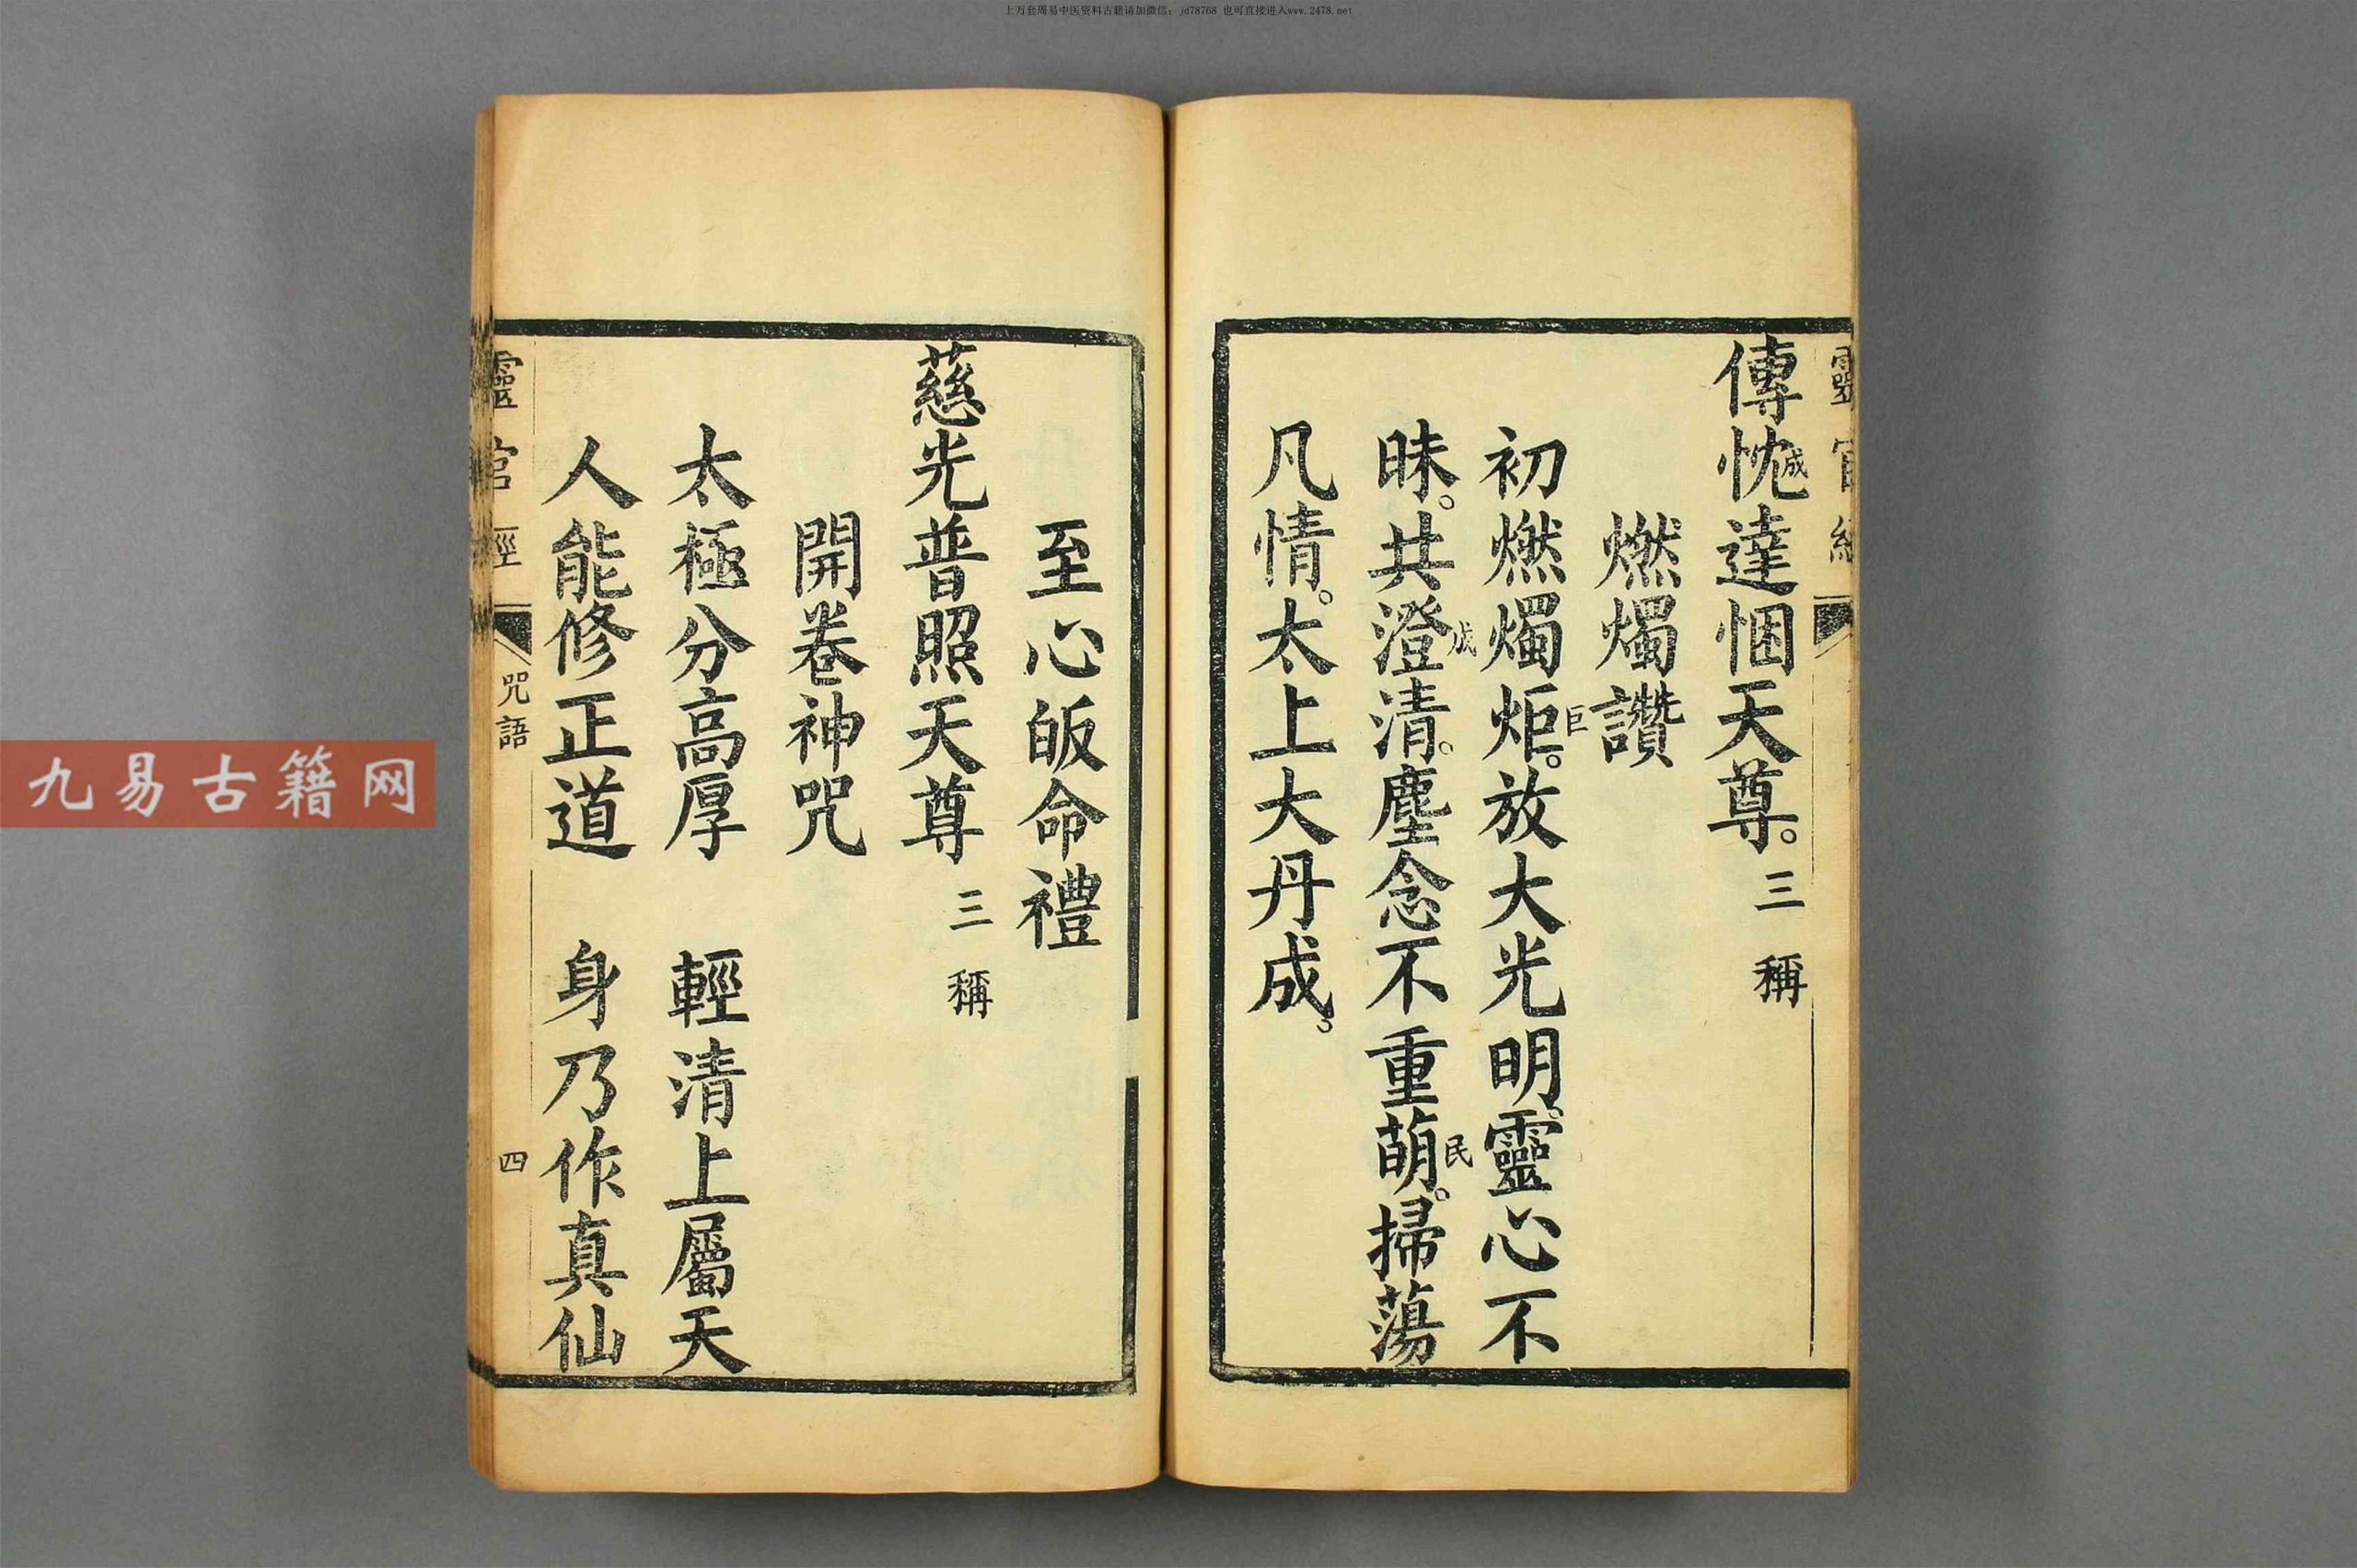 上万套周易中医资料古籍请加微信：jd78768 也可直接进入www.2478.net
傳忱誠達悃天尊。三稱
燃燭讚
初燃燭炬巨。放大光明。靈心不
昧。共澄成清。塵念不重萌民。掃蕩
凡情。太上大丹成。
至心皈命禮
慈光普照天尊 三稱
開卷神咒
太極分高厚 輕清上屬天
人能修正道 身乃作真仙
靈官經 咒語 四
九易古籍网